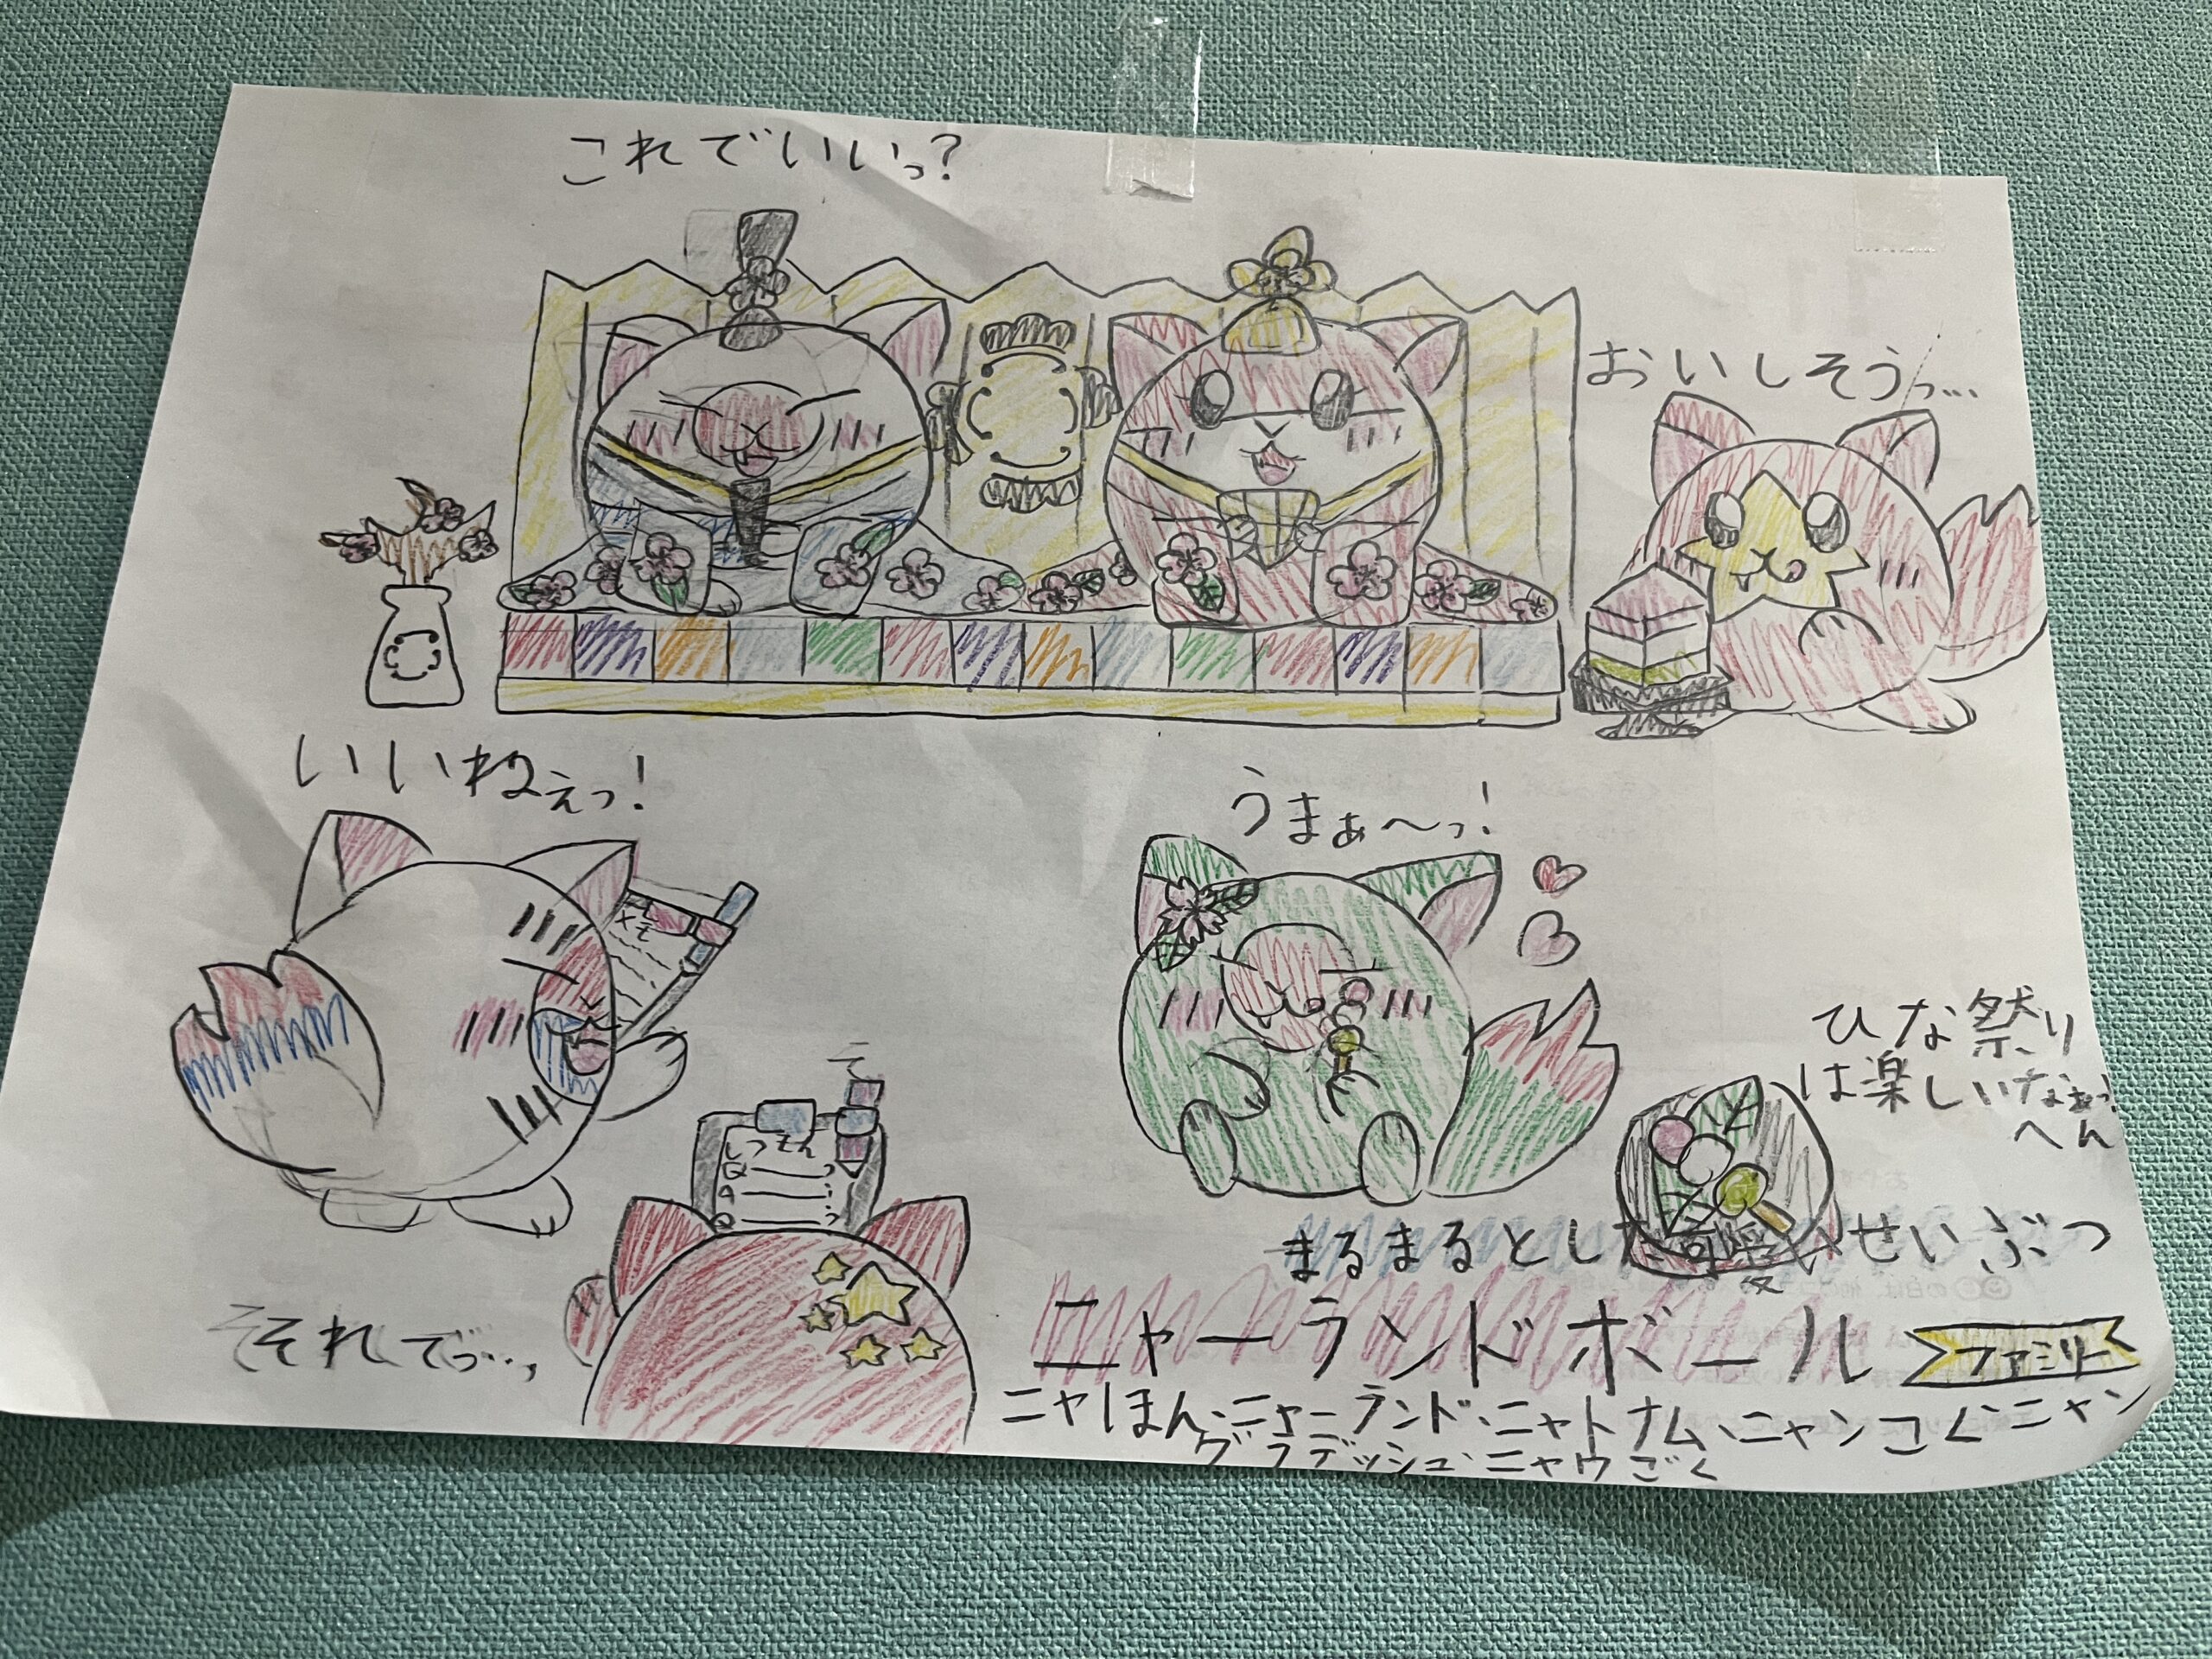 これでいいっ?
おいしそうっ…
いいねぇっ!
うまぁ〜っ!
メモ
ひな祭り
は楽しいなぁっ!
へん
しつもん
Q
A
Q
それでっ…、
まるまるとした可愛いせいぶつ
ニャーランドボール ファミリー
ニャほん、ニャーランド、ニャトナム、ニャンコくニャン
グラデッシュ、ニャウごく